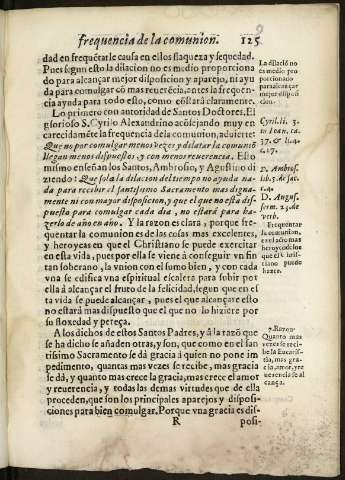 frequencia de la comunion. 125
dad en frequētarle causa en ellos flaqueza y sequedad.
Pues segun esto la dilacion no es medio proporciona
do para alcançar mejor disposicion y aparejo, ni ayu
da para comulgar cō mas reuerēcia, antes la frequen
cia ayuda para todo esto, como cōstará claramente.
Lo primero con autoridad de Santos Doctores. El
glorioso S. Cyrilo Alexandrino acōsejando muy en
carecidamēte la frequencia de la comunion, aduierte:
Que no por comulgar menos vezes y dilatar la comuniō
llegan menos dispuestos, y con menos reuerencia. Esto
mismo enseñan los Santos, Ambrosio, y Agustino di
ziendo: Que sola la dilacion del tiempo no ayuda na-
da para recebir el santissimo Sacramento mas digna-
mente ni con mayor disposicion, y que el que no está dis-
puesto para comulgar cada dia, no estará para ha-
zerlo de año en año. Y la razon es clara, porque fre-
quentar la comunion es de las cosas mas excelentes,
y heroycas en que el Christiano se puede exercitar
en esta vida, pues por ella se viene à conseguir vn fin
tan soberano, la vnion con el sumo bien, y con cada
vna se edifica vna espiritual escalera para subir por
ella à alcançar el fruto de la felicidad, segun que en es
ta vida se puede alcançar, pues el que alcançare esto
no estará mas dispuesto que el que no lo hiziere por
su floxedad y pereça.
A los dichos de estos Santos Padres, y à la razō que
se ha dicho se añaden otras, y son, que como en el san
tissimo Sacramento se dá gracia à quien no pone im
pedimento, quantas mas vezes se recibe, mas gracia
se dá, y quanto mas crece la gracia, mas crece el amor
y reuerencia, y todas las demas virtudes que de ella
proceden, que son los principales aparejos y disposi-
ciones para bien comulgar. Porque vna gracia es dis-
R posi-
La dilaciō no
es medio pro
porcionado
para alcāçar
mejor disposi
cion.
Cyril. li. 3.
in Ioan. ca.
37. & li. 4.
c. 17.
D. Ambros.
lib. 5. de sac.
c. 4.
D. Augus.
serm. 28. de
verb.
Frequentar
la comunion,
es el acto mas
heroyco en los
que el Chris-
tiano puede
hazer.
7. Razon.
Quanto mas
vezes se reci-
be la Eucaris-
tia, mas gra-
cia, amor, y re
uerencia se al
cança.